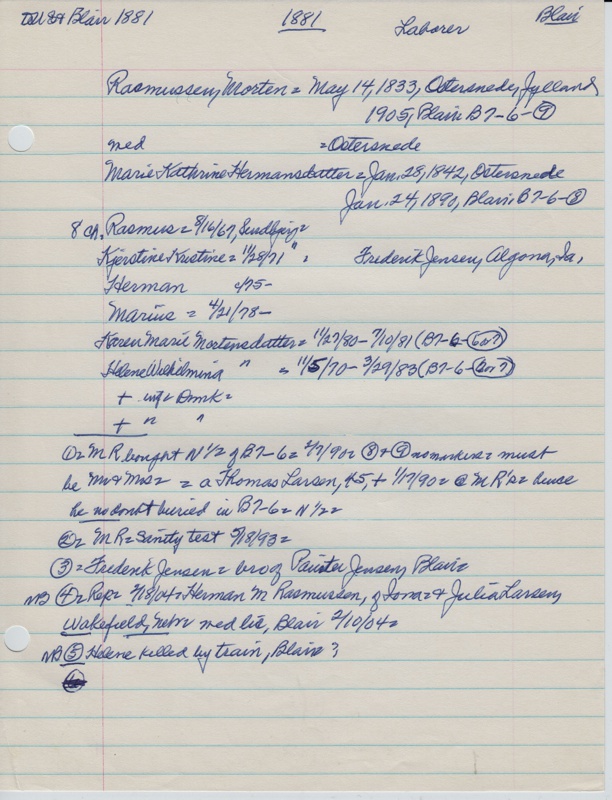 Blair 1881 1881 Laborer Blair
Rasmussen, Morten = May 14, 1833, Ostersnede, Jylland
1905, Blair B7-6-9
med = Ostersnede
Marie Kathrine Hermansdatter = Jan. 28, 1842, Ostersnede
Jan. 24, 1890, Blair, B7-6-8
8 ch. Rasmus = 8/16/67,
Kjerstine Kristine = 11/28/71 " = Frederik Jensen, Algona, Ia,
Herman 4/75-
Marius = 4/21/78-
Karen Marie Mortensdatter = 11/27/80 - 7/10/81 (B7-6-6or7)
Helene Wilhelmina " = 11/5/70 - 3/29/83 (B7-6-6or7)
+ inf = Dmk =
+ " "
① = MR bought N 1/2 of B7-6 = 2/7/90 = ⑧ + ⑨ no markers = must
be Mr + Mrs = = a Thomas Larsen, 45, + 1/17/90 = @ MR's = hence
he no doubt buried in B7-6 = N 1/2 =
② = MR = Sanity test /18/93 =
③ = Frederik Jensen = bro of Pastor Jensen, Blair =
NB ④ = Rep = 2/18/04 = Herman M Rasmussen, of Iona = + Julia Larsen,
Wakefield, Nebr = med lic, Blair 2/10/04 =
NB ⑤ Helene killed by train, Blair ?